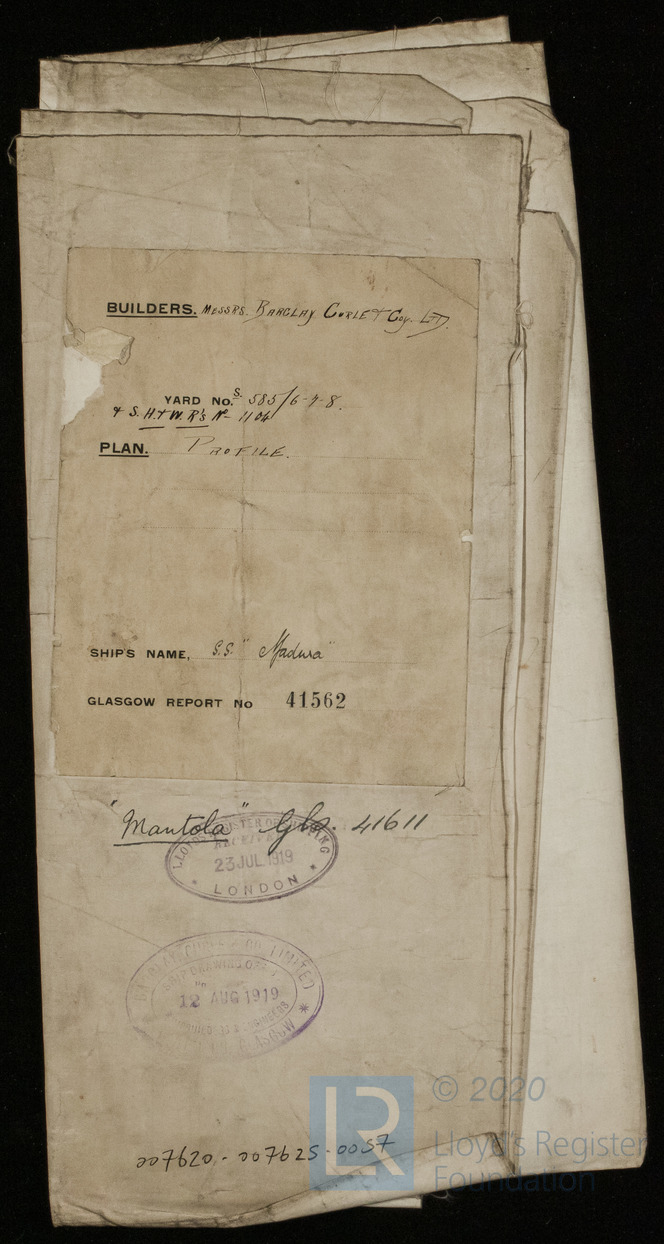 BUILDERS. MESSRS. BARCLAY CURLE & COY. LTD.
YARD No.S. 585/6-7-8.
& S. H. & W. R's No 1104
PLAN. PROFILE.
SHIP'S NAME, S.S. "Madura"
GLASGOW REPORT No 41562
"Mantola" Gls. 41611
LLOYD'S REGISTER OF SHIPPING
RECEIVED
23 JUL 1919
LONDON
BARCLAY CURLE & CO. LIMITED
SHIP DRAWING OFFICE
12 AUG 1919
GLASGOW
007620-007625-0057
LR
© 2020
Lloyd's Register
Foundation